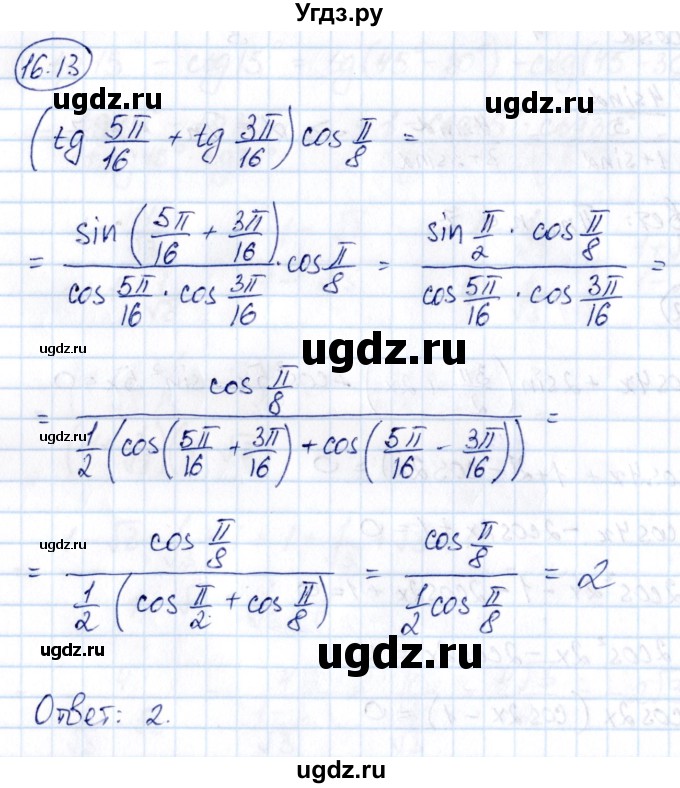 Угдз.ру
16.13
ugdz.ru ugdz.ru
(tg 5π/16 + tg 3π/16) cos π/8 =
= sin(5π/16 + 3π/16) / (cos 5π/16 · cos 3π/16) · cos π/8 = (sin π/2 · cos π/8) / (cos 5π/16 · cos 3π/16) =
ugdz.ru ugdz.ru
= cos π/8 / (1/2 (cos(5π/16 + 3π/16) + cos(5π/16 - 3π/16))) =
ugdz.ru
= cos π/8 / (1/2 (cos π/2 + cos π/8)) = cos π/8 / (1/2 cos π/8) = 2
ugdz.ru
ugdz.ru ugdz.ru
Ответ: 2.
ugdz.ru